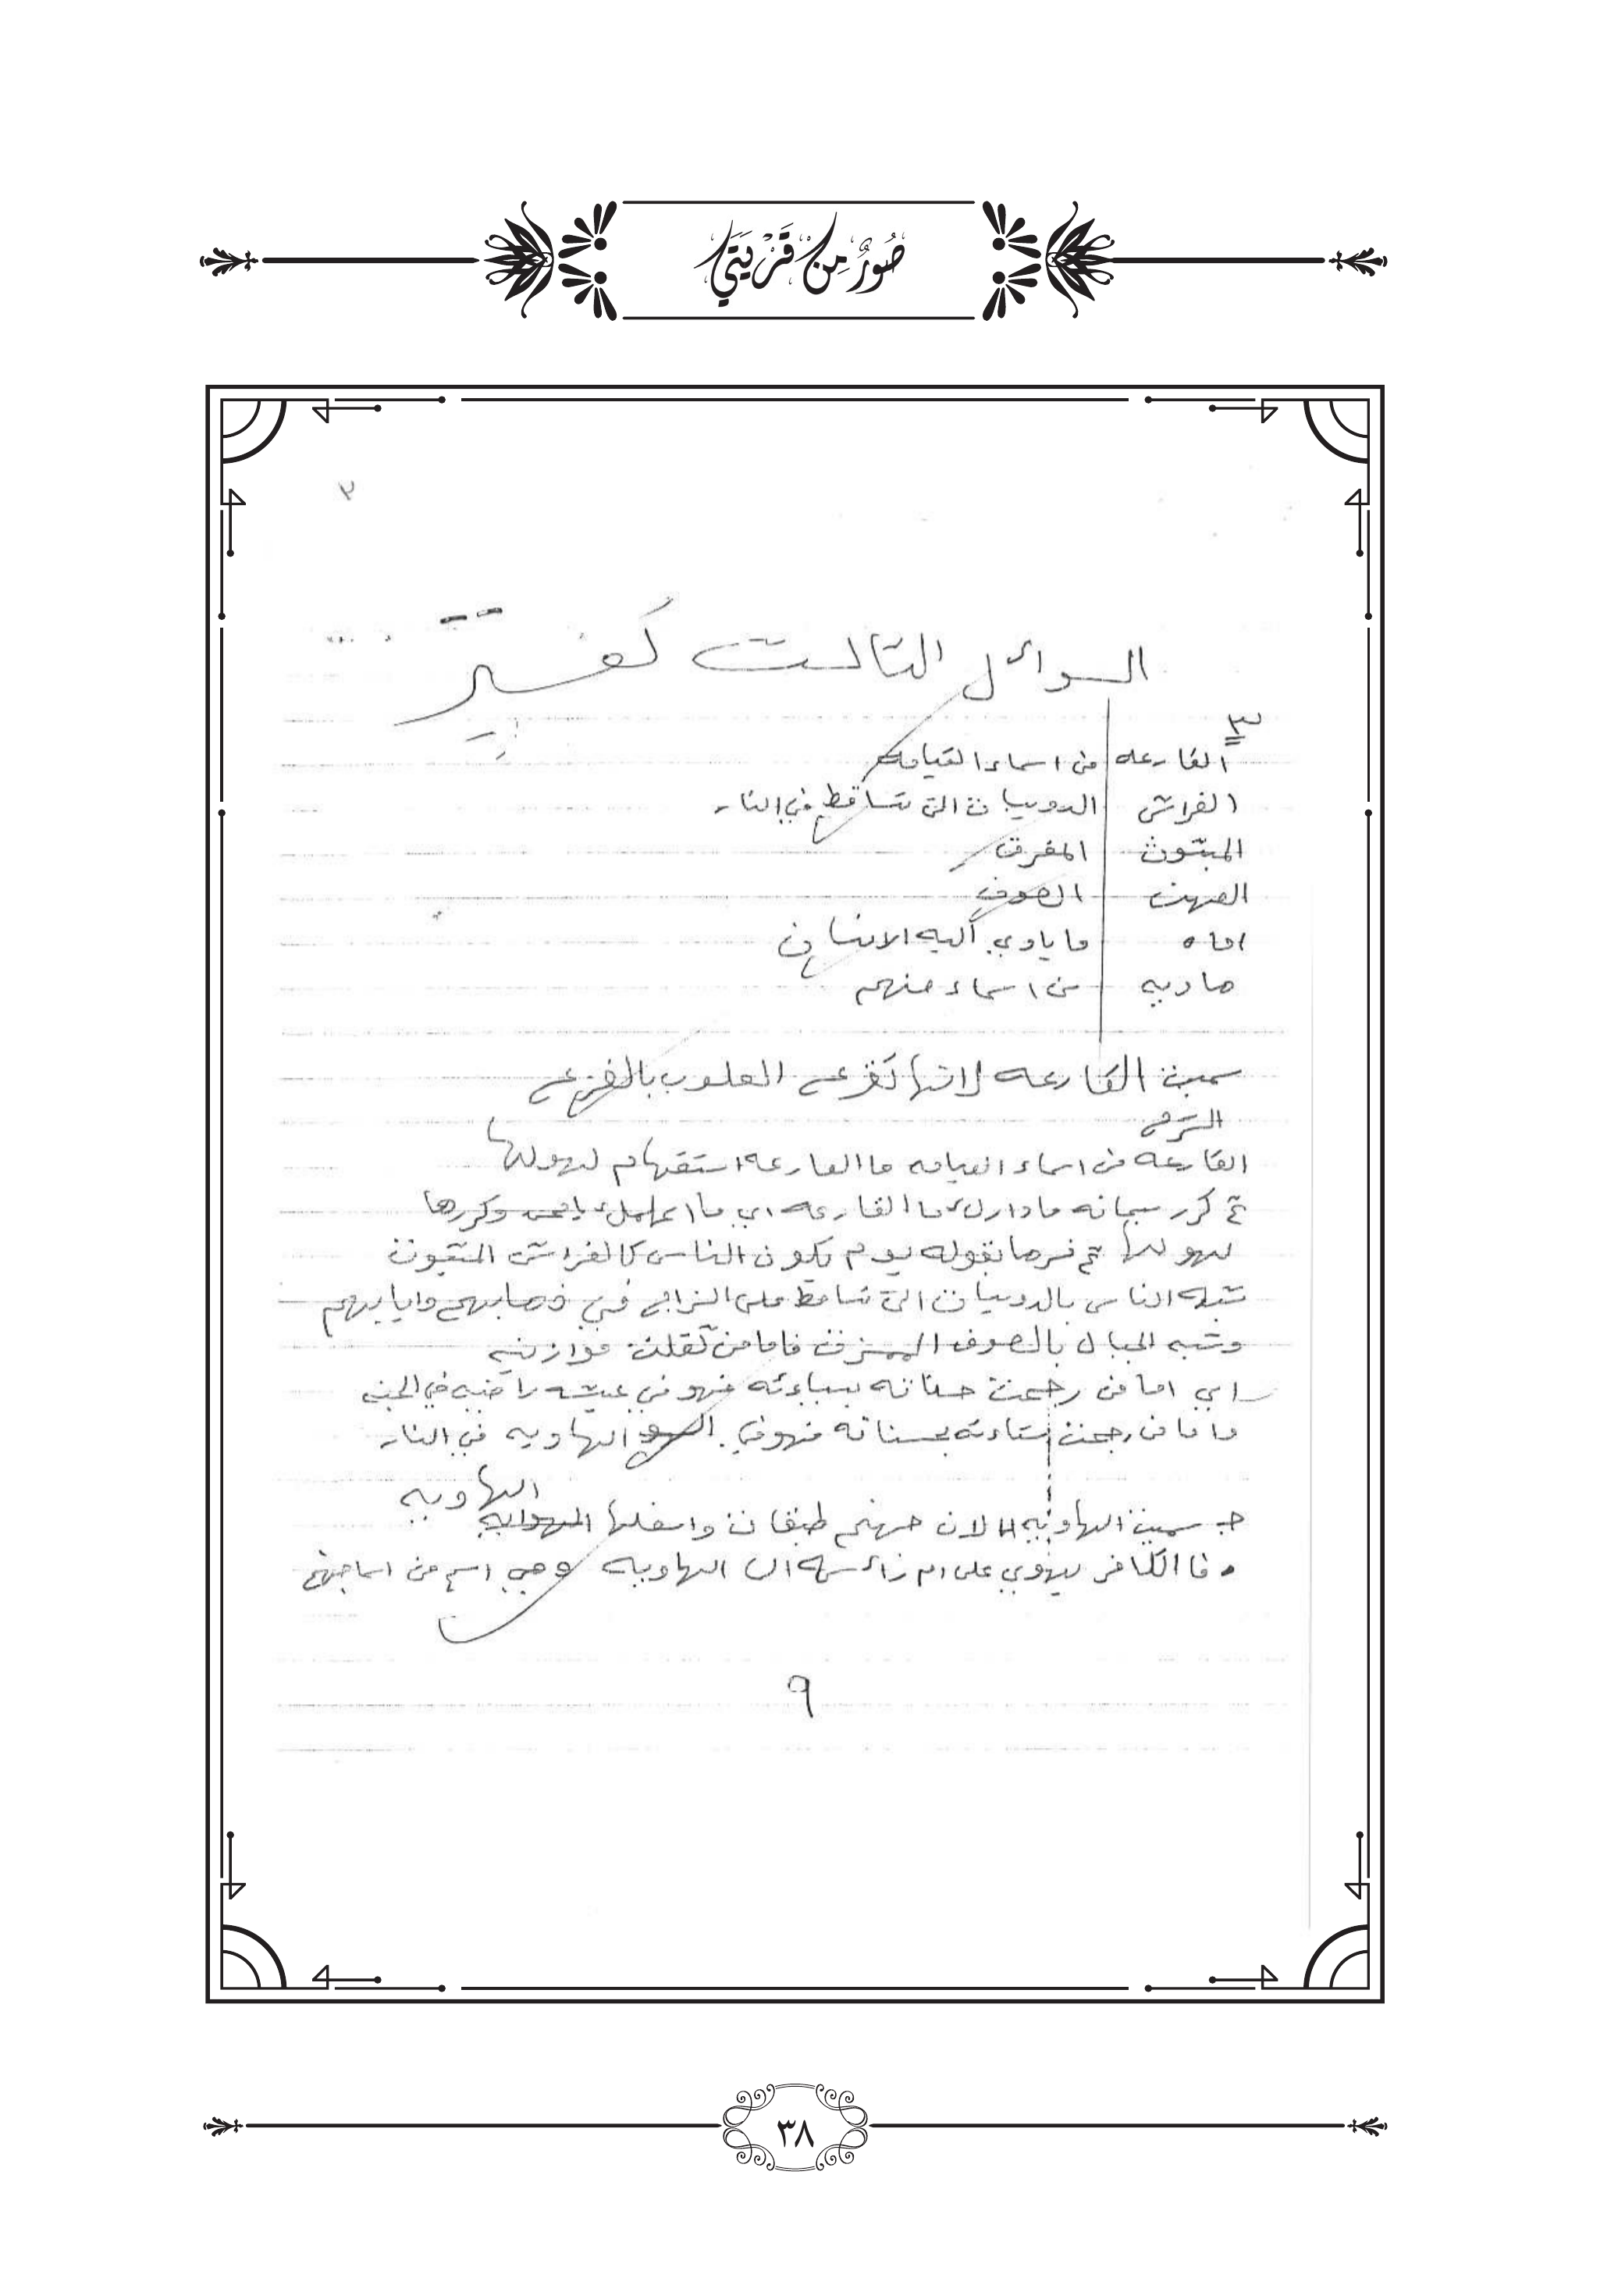 صُوَرٌ مِن قَرْيَتِي
٣
السوائل الثالث تفسير
٣
القارعه من اسماء القيامه
الفراش الدويبات التي تساقط في النار
المبثوث المفرق
العهن الصوف
امه ما ياوي اليه الانسان
هاويه من اسماء جهنم
سميت القارعه لانها تقرع القلوب بالفزع
الشرح
القارعه من اسماء القيامه ما القارعه استفهام لهولها
ثم كرر سبحانه ما دارك ما القارعه اي ما اعلمك وكررها
لهولها ثم فسرها بقوله يوم يكون الناس كالفراش المبثوث
شبه الناس بالدويبات التي تساقط على السراج في ذهابهم وايابهم
وشبه الجبال بالصوف فاما من ثقلت موازينه
اي اما من رجحت حسناته بسيائته فهو في عيشه راضيه في الجنه
واما من رجحت سيائته بحسناته فهو في الهاويه في النار
الهاويه
جـ سميت الهاويه لان جهنم طبقات واسفلها
فا الكافر ليهوي على ام رائسه الى الهاويه وهي اسم من اسما جهنم
٩
٣٨